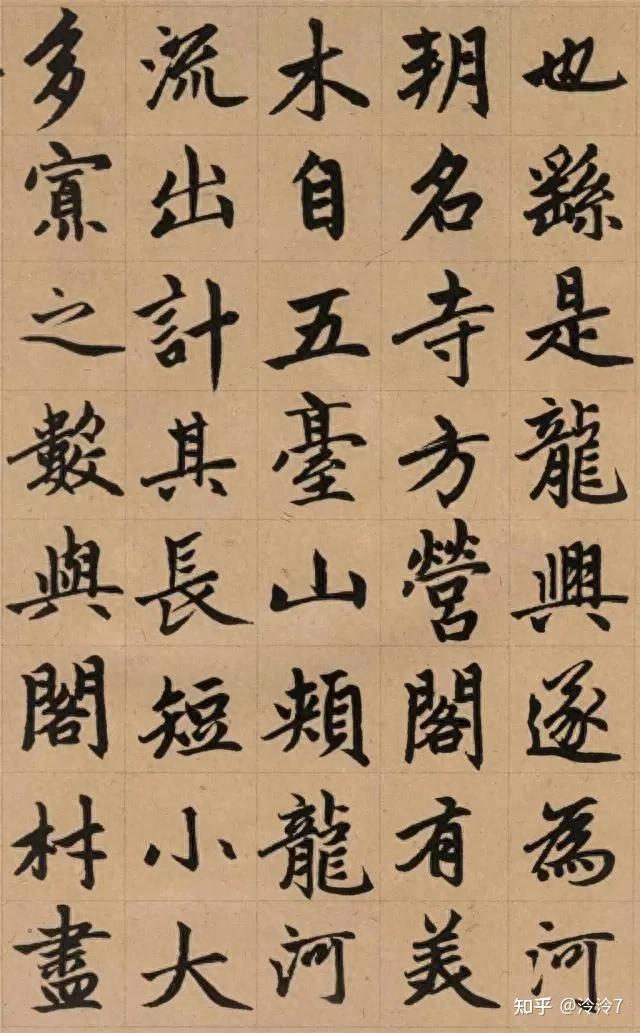 也繇是龍興遂為河
朔名寺方營閣有美
木自五臺山頰龍河
流出計其長短小大
多寡之數與閣材盡
知乎 @泠泠7